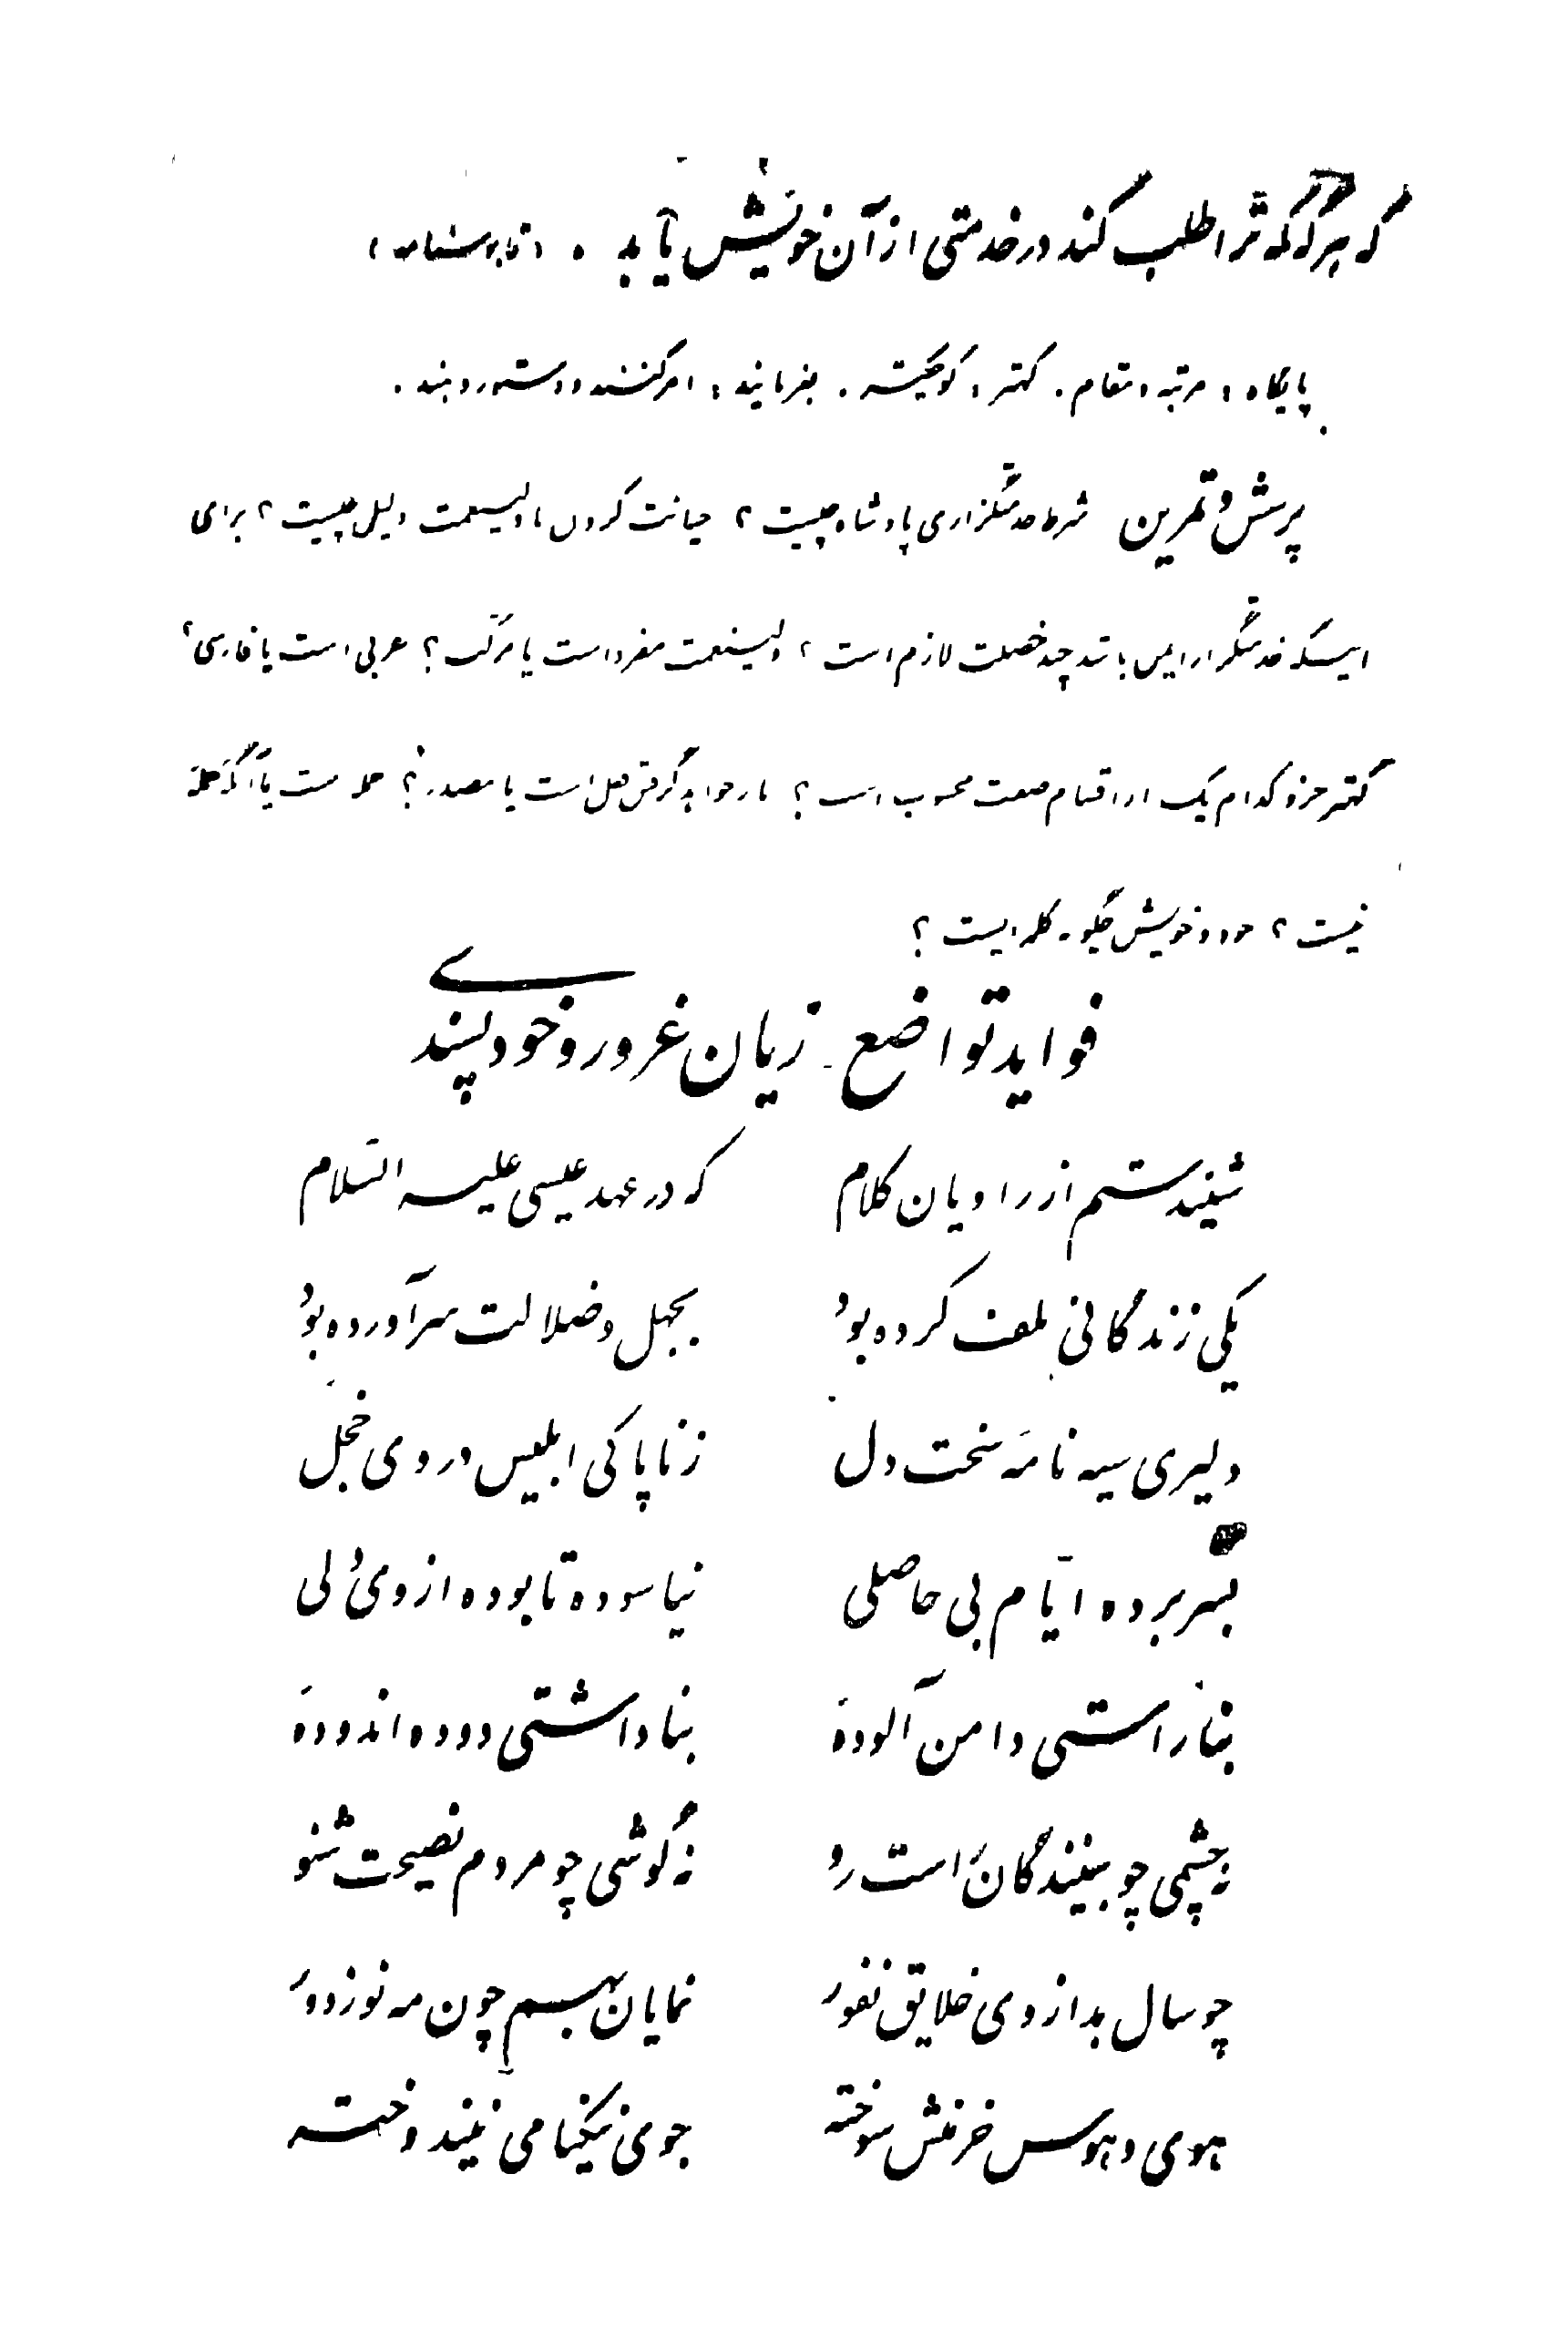 که هرگه که ترا طلب کند در خدمتی از آن خویش یابد . (قابوسنامه)
پایگاه : مرتبه ، مقام . کهتر : کوچکتر . بفرمایند : امر کنند و دستور دهند .
پرسش و تمرین شرط خدمتگزاری پادشاه چیست ؟ خیانت کردن با ولینعمت دلیل چیست ؟ برای
اینکه خدمتگزار امین باشد چه خصلت لازم است ؟ ولینعمت مفرد است یا مرکب ؟ عربی است یا فارسی ؟
کهتر جزو کدام یک از اقسام صفت محسوب است ؟ باز خواهد گرفتن فعل است یا مصدر ؟
نیست ؟ خود و خویش چگونه کلمه ایست ؟
فواید تواضع - زیان غرور و خودپسندی
شنیدستم از راویان کلام که در عهد عیسی علیه السلام
یکی زندگانی تلف کرده بود بجهل و ضلالت سرآورده بود
دلیری سیه نامه سخت دل ز ناپاکی ابلیس در وی خجل
بسر برده ایام بی حاصلی نیاسوده تا بوده از وی دلی
بناراستی دامن آلوده بناداشتی دوده اندوده
نه چشمی چو بینندگان راست رو نه گوشی چو مردم نصیحت شنو
چو سال بد از وی خلایق نفور نمایان بهم چون مه نو ز دور
هوی و هوس خرمنش سوخته جوی نیکنامی نیندوخته